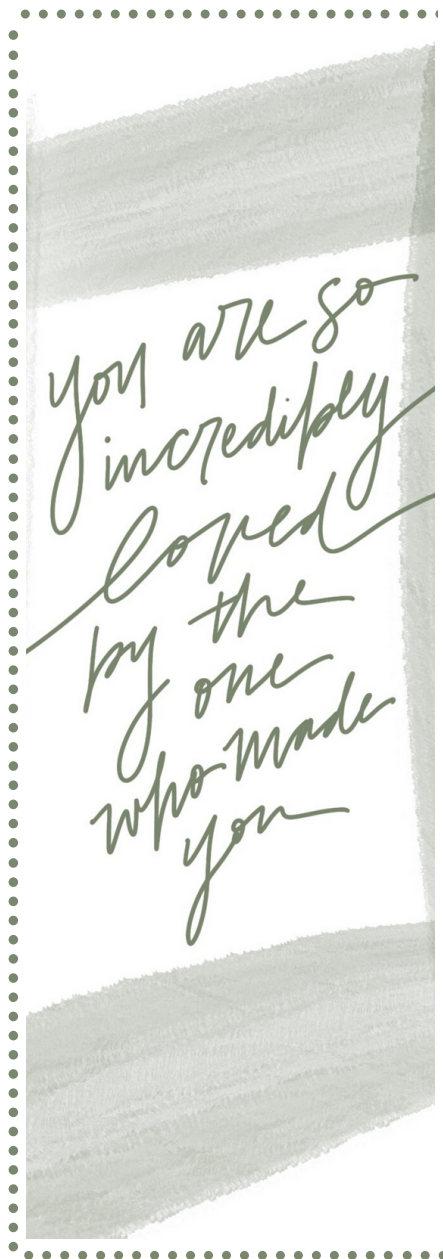 you are so
incredibly
loved
by the
one
who made
you